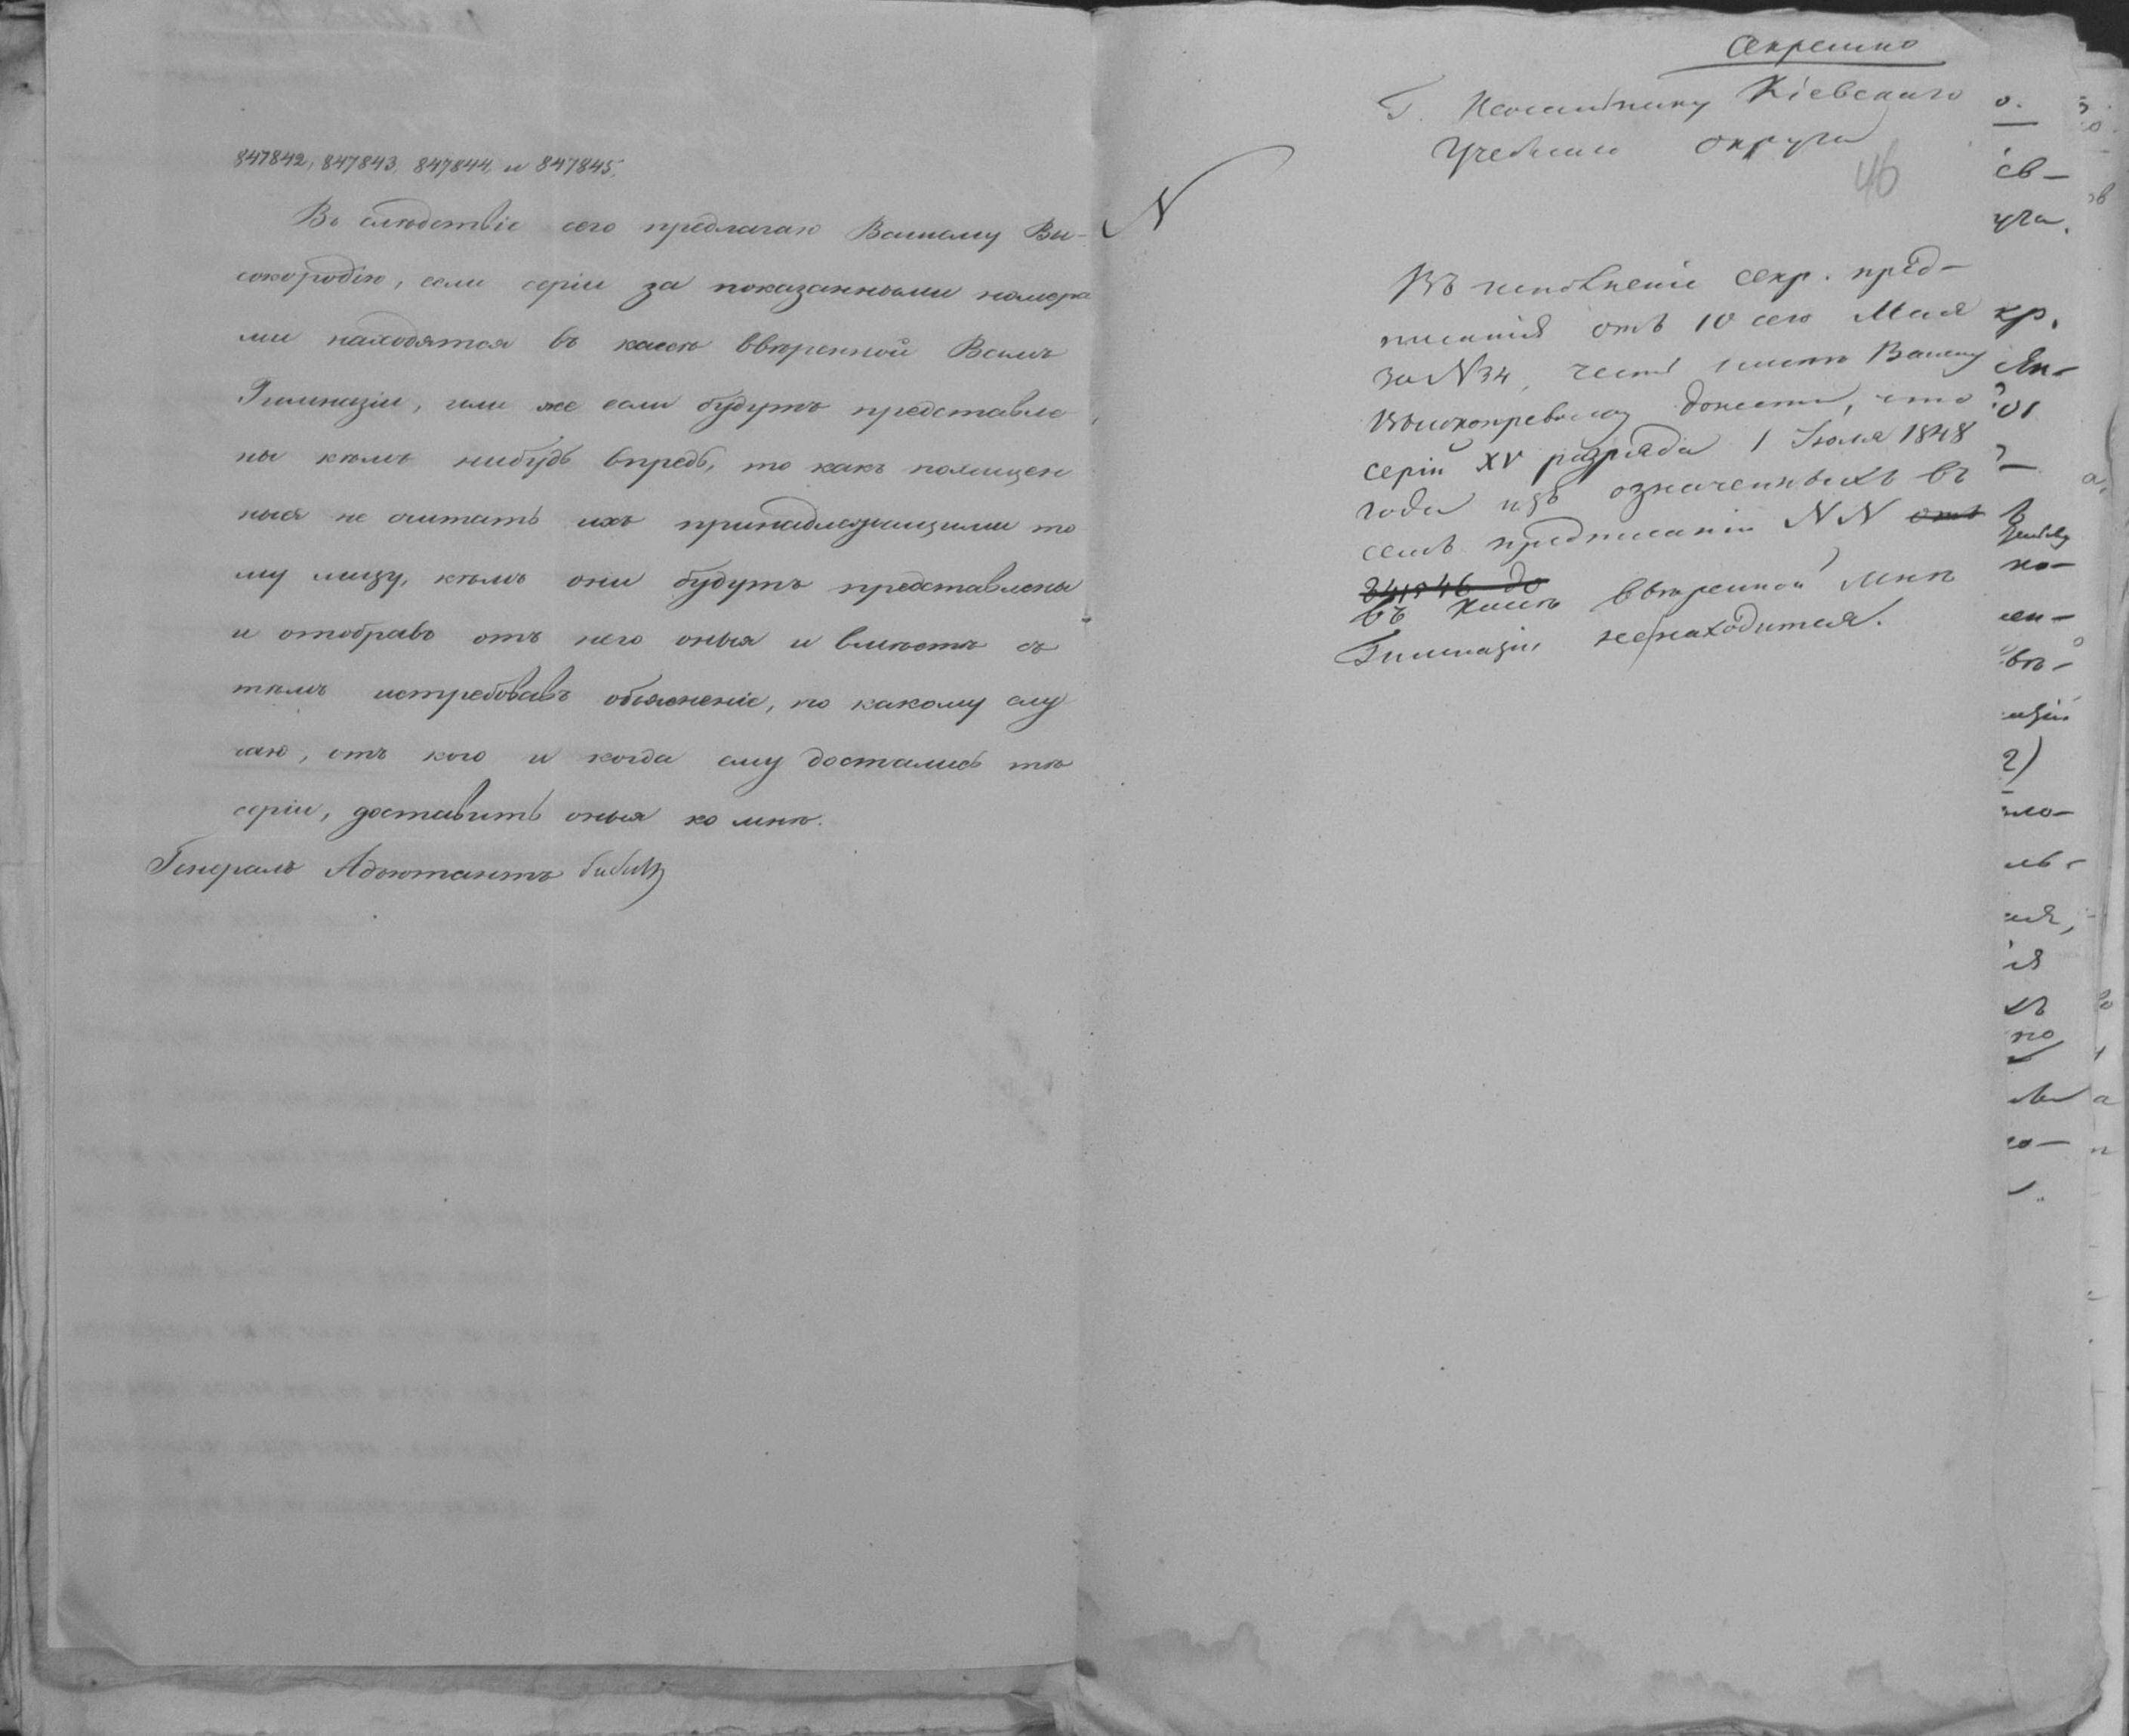 847842, 847843, 847844, и 847845.
Въ слѣдствіе сего предлагаю Вашему Вы-
сокородію, если серіи за показанными номера
ми находятся въ кассѣ ввѣренной Вамъ
Гимназіи, или же если будутъ представле
ны кѣмъ нибудь впредь, то какъ похищен
ныя не считать ихъ принадлежащими то
му лицу, кѣмъ они будутъ представлены
и отобравъ отъ него оныя и вмѣстѣ съ
тѣмъ истребовавъ объясненіе, по какому слу
чаю, отъ кого и когда ему достались тѣ
серіи, доставить оныя ко мнѣ.
Генералъ Адъютантъ Бибиковъ
Секретно
Г. Попечителю Кіевскаго
Учебнаго округа
46
N
Въ исполненіе секр. пред-
писанія отъ 10 сего Мая
за N 34, честь имѣю Вашему
Высокопревосх донести, что
серій XV разряда 1 Іюля 1848
года изъ означенныхъ въ
семъ предписаніи NN отъ
въ кассѣ ввѣренной мнѣ
Гимназіи не находится.
о.
ев-
уга.
кр.
но-
ен-
вѣ-
2)
ло-
ль-
ія
хъ
по
го-